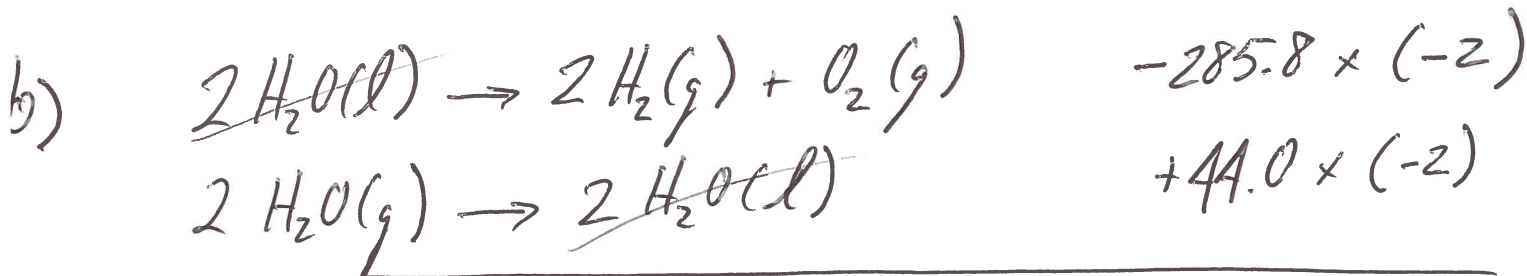 b) 2 H₂O(l) → 2 H₂(g) + O₂(g) -285.8 × (-2)
2 H₂O(g) → 2 H₂O(l) +44.0 × (-2)